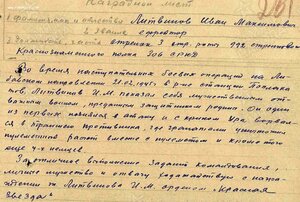 Наградной лист
1. Фамилия имя и отчество Литвинов Иван Максимович
2. Звание ефрейтор
3. Должность, часть стрелок 3 стр. роты 992 стрелкового
Краснознаменного полка
Во время наступательных боевых операций на
направлении 21.02.1945 в р-не станции
Литвинов И.М показал себя мужественным
важным воином, преданным защитником родины. Он один
из первых поднялся в атаку и с криком Ура ворвался
в траншеи противника, где гранатами уничтожил
пулеметный расчет вместе с пулеметом и кроме того
еще 4-х немцев.
За отличное выполнение заданий командования,
личное мужество и отвагу ходатайствую о награ-
ждении т. Литвинова И.М. орденом „Красная
Звезда"